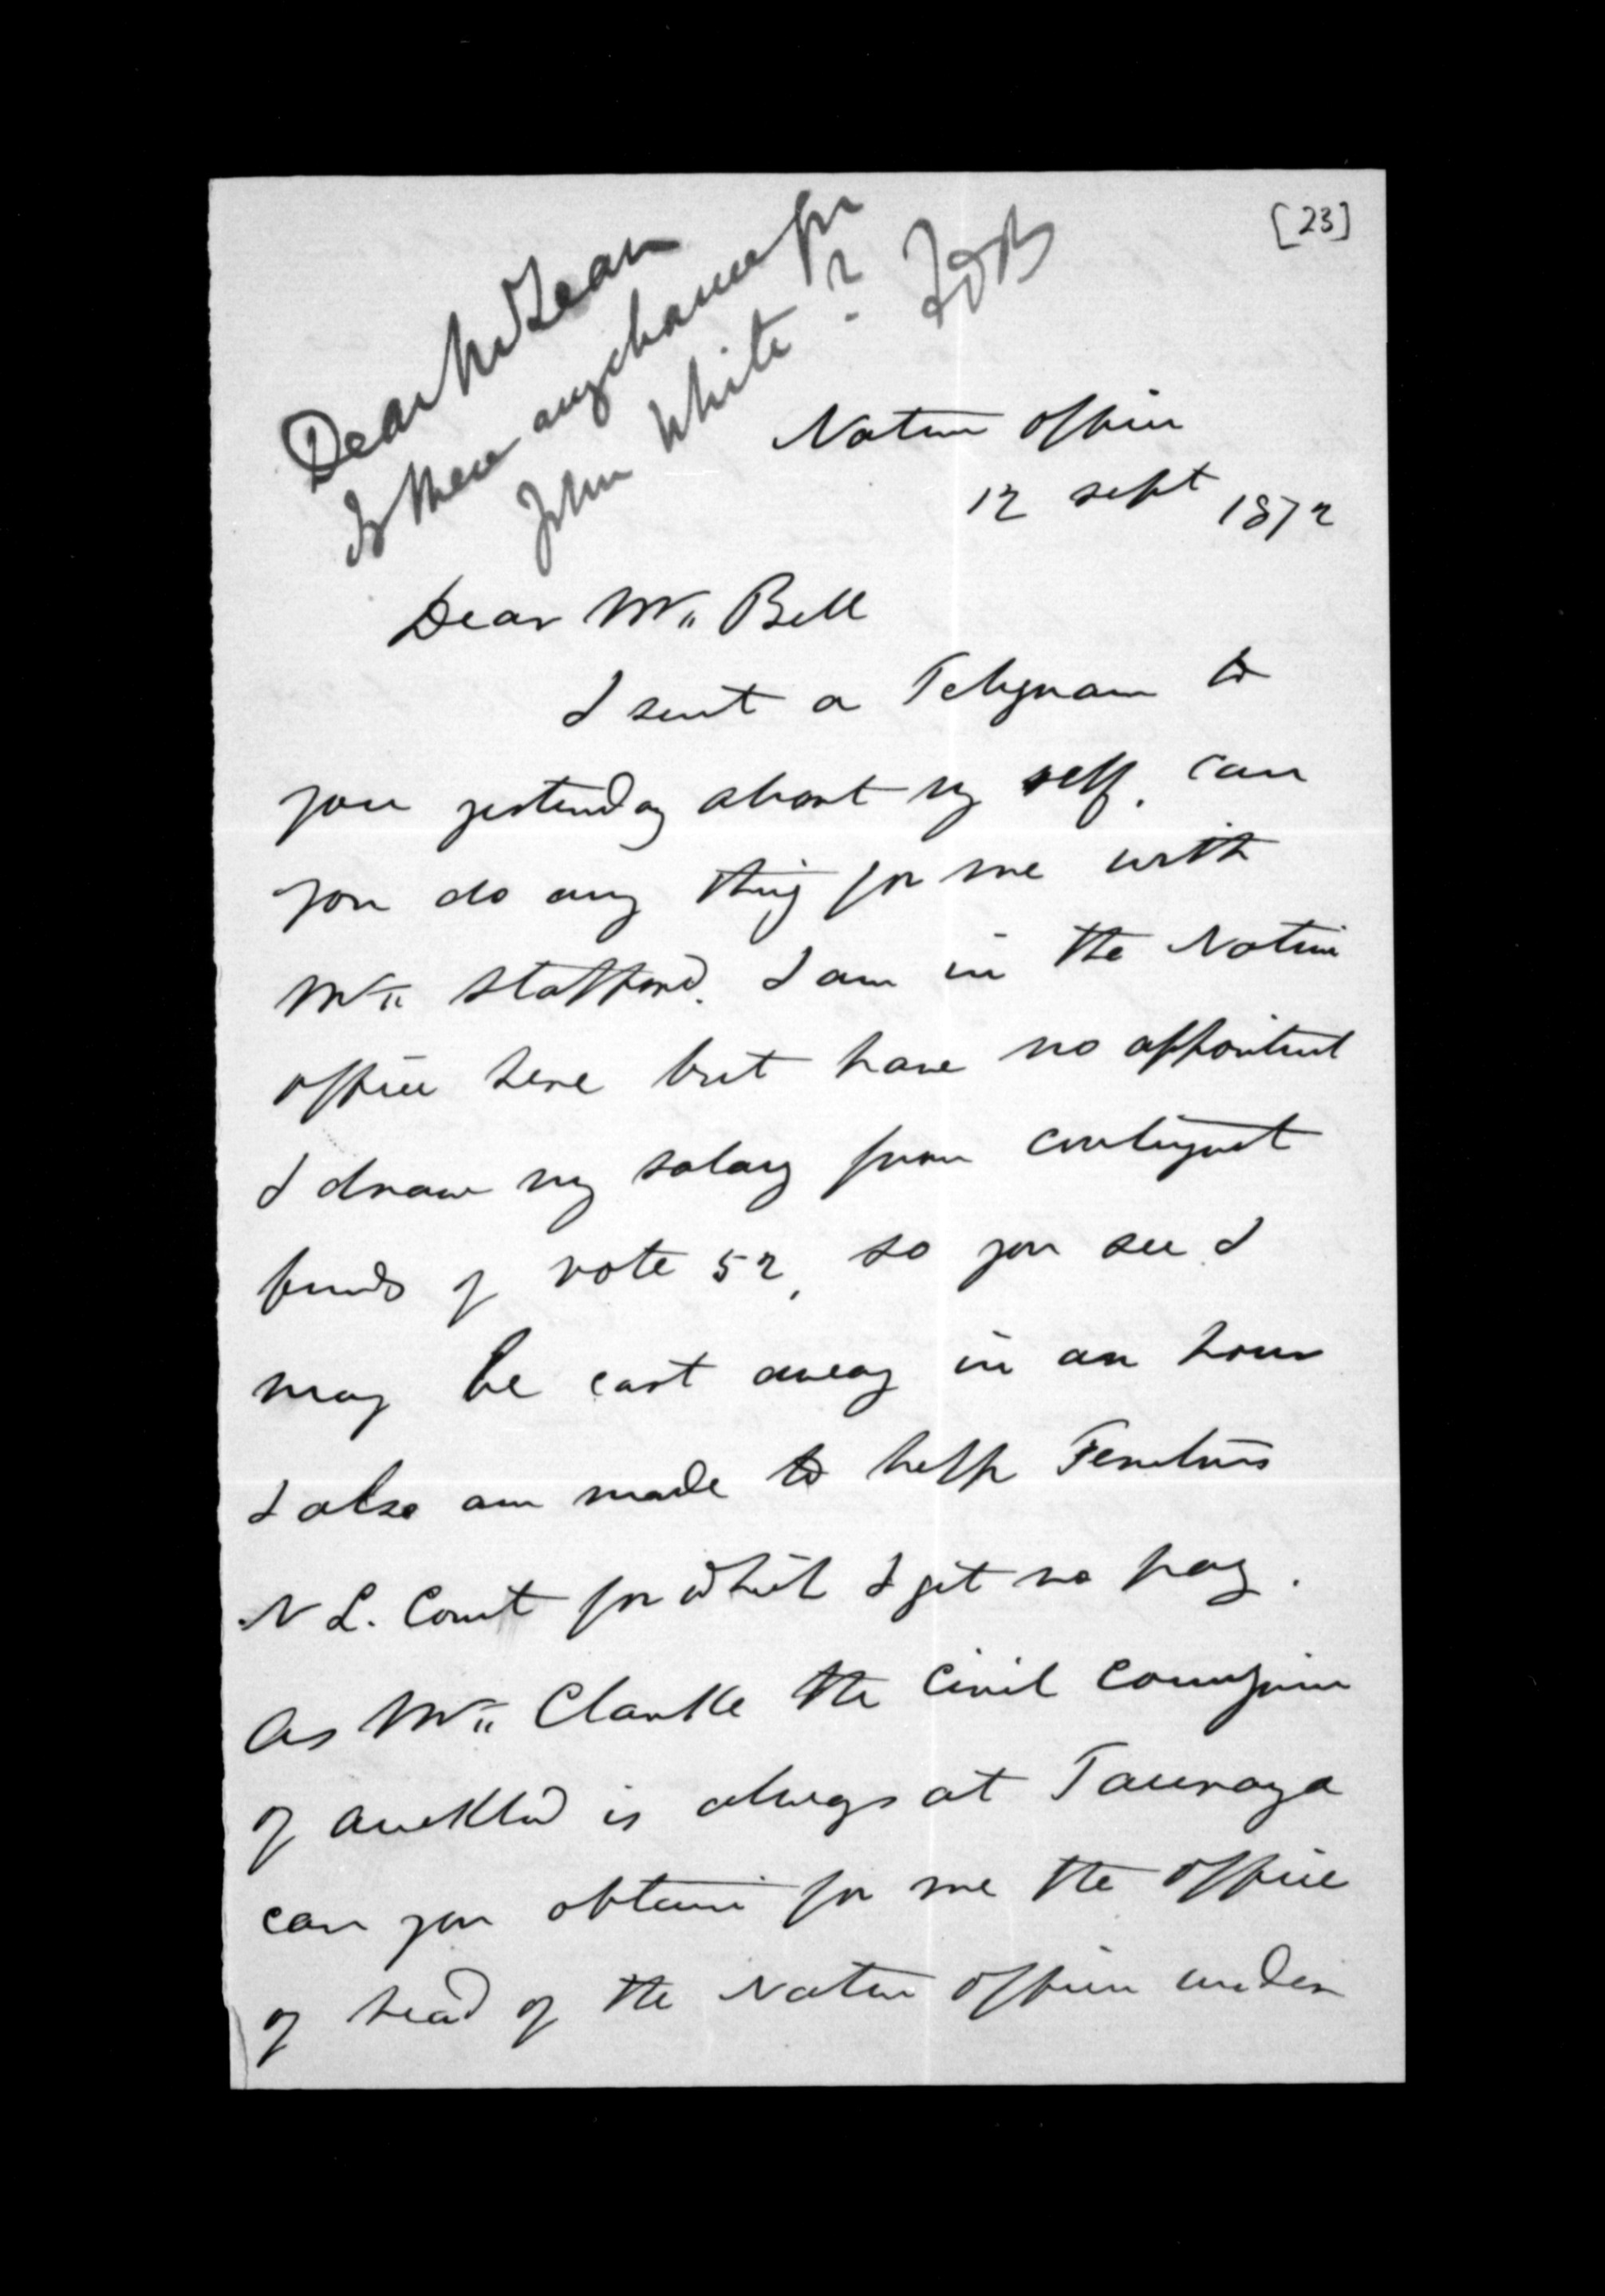 [23]
Dear McLean
Is there any chance for
John White? FDB
Native Office
12 sept 1872
Dear Mr. Bell
I sent a Telegram to
you yesterday about my self. can
you do any thing for me with
Mr. Stafford. I am in the Native
office here but have no appointment
I draw my salary from contingent
funds of vote 52, so you see I
may be cast away in an hour
I also am made to help Fenton's
N L. Court for which I get no pay.
As Mr. Clarke the Civil Commissioner
of Auckland is always at Tauranga
can you obtain for me the office
of head of the Native Office under